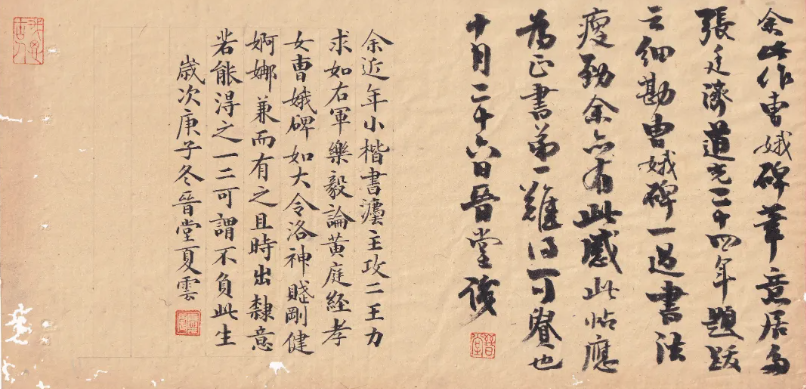 余此作曹娥碑筆意居多
張廷濟道光二十四年題跋
云細勘曹娥碑一過書法
瘦勁余亦有此感此帖應
為正書第一難得可寶也
十月二十六日晉堂後
余近年小楷書瀆主攻二王力
求如右軍樂毅論黃庭經孝
女曹娥碑如大令洛神賤剛健
婀娜兼而有之且時出隸意
若能得之一二可謂不負此生
歲次庚子冬晉堂夏雲
晉堂